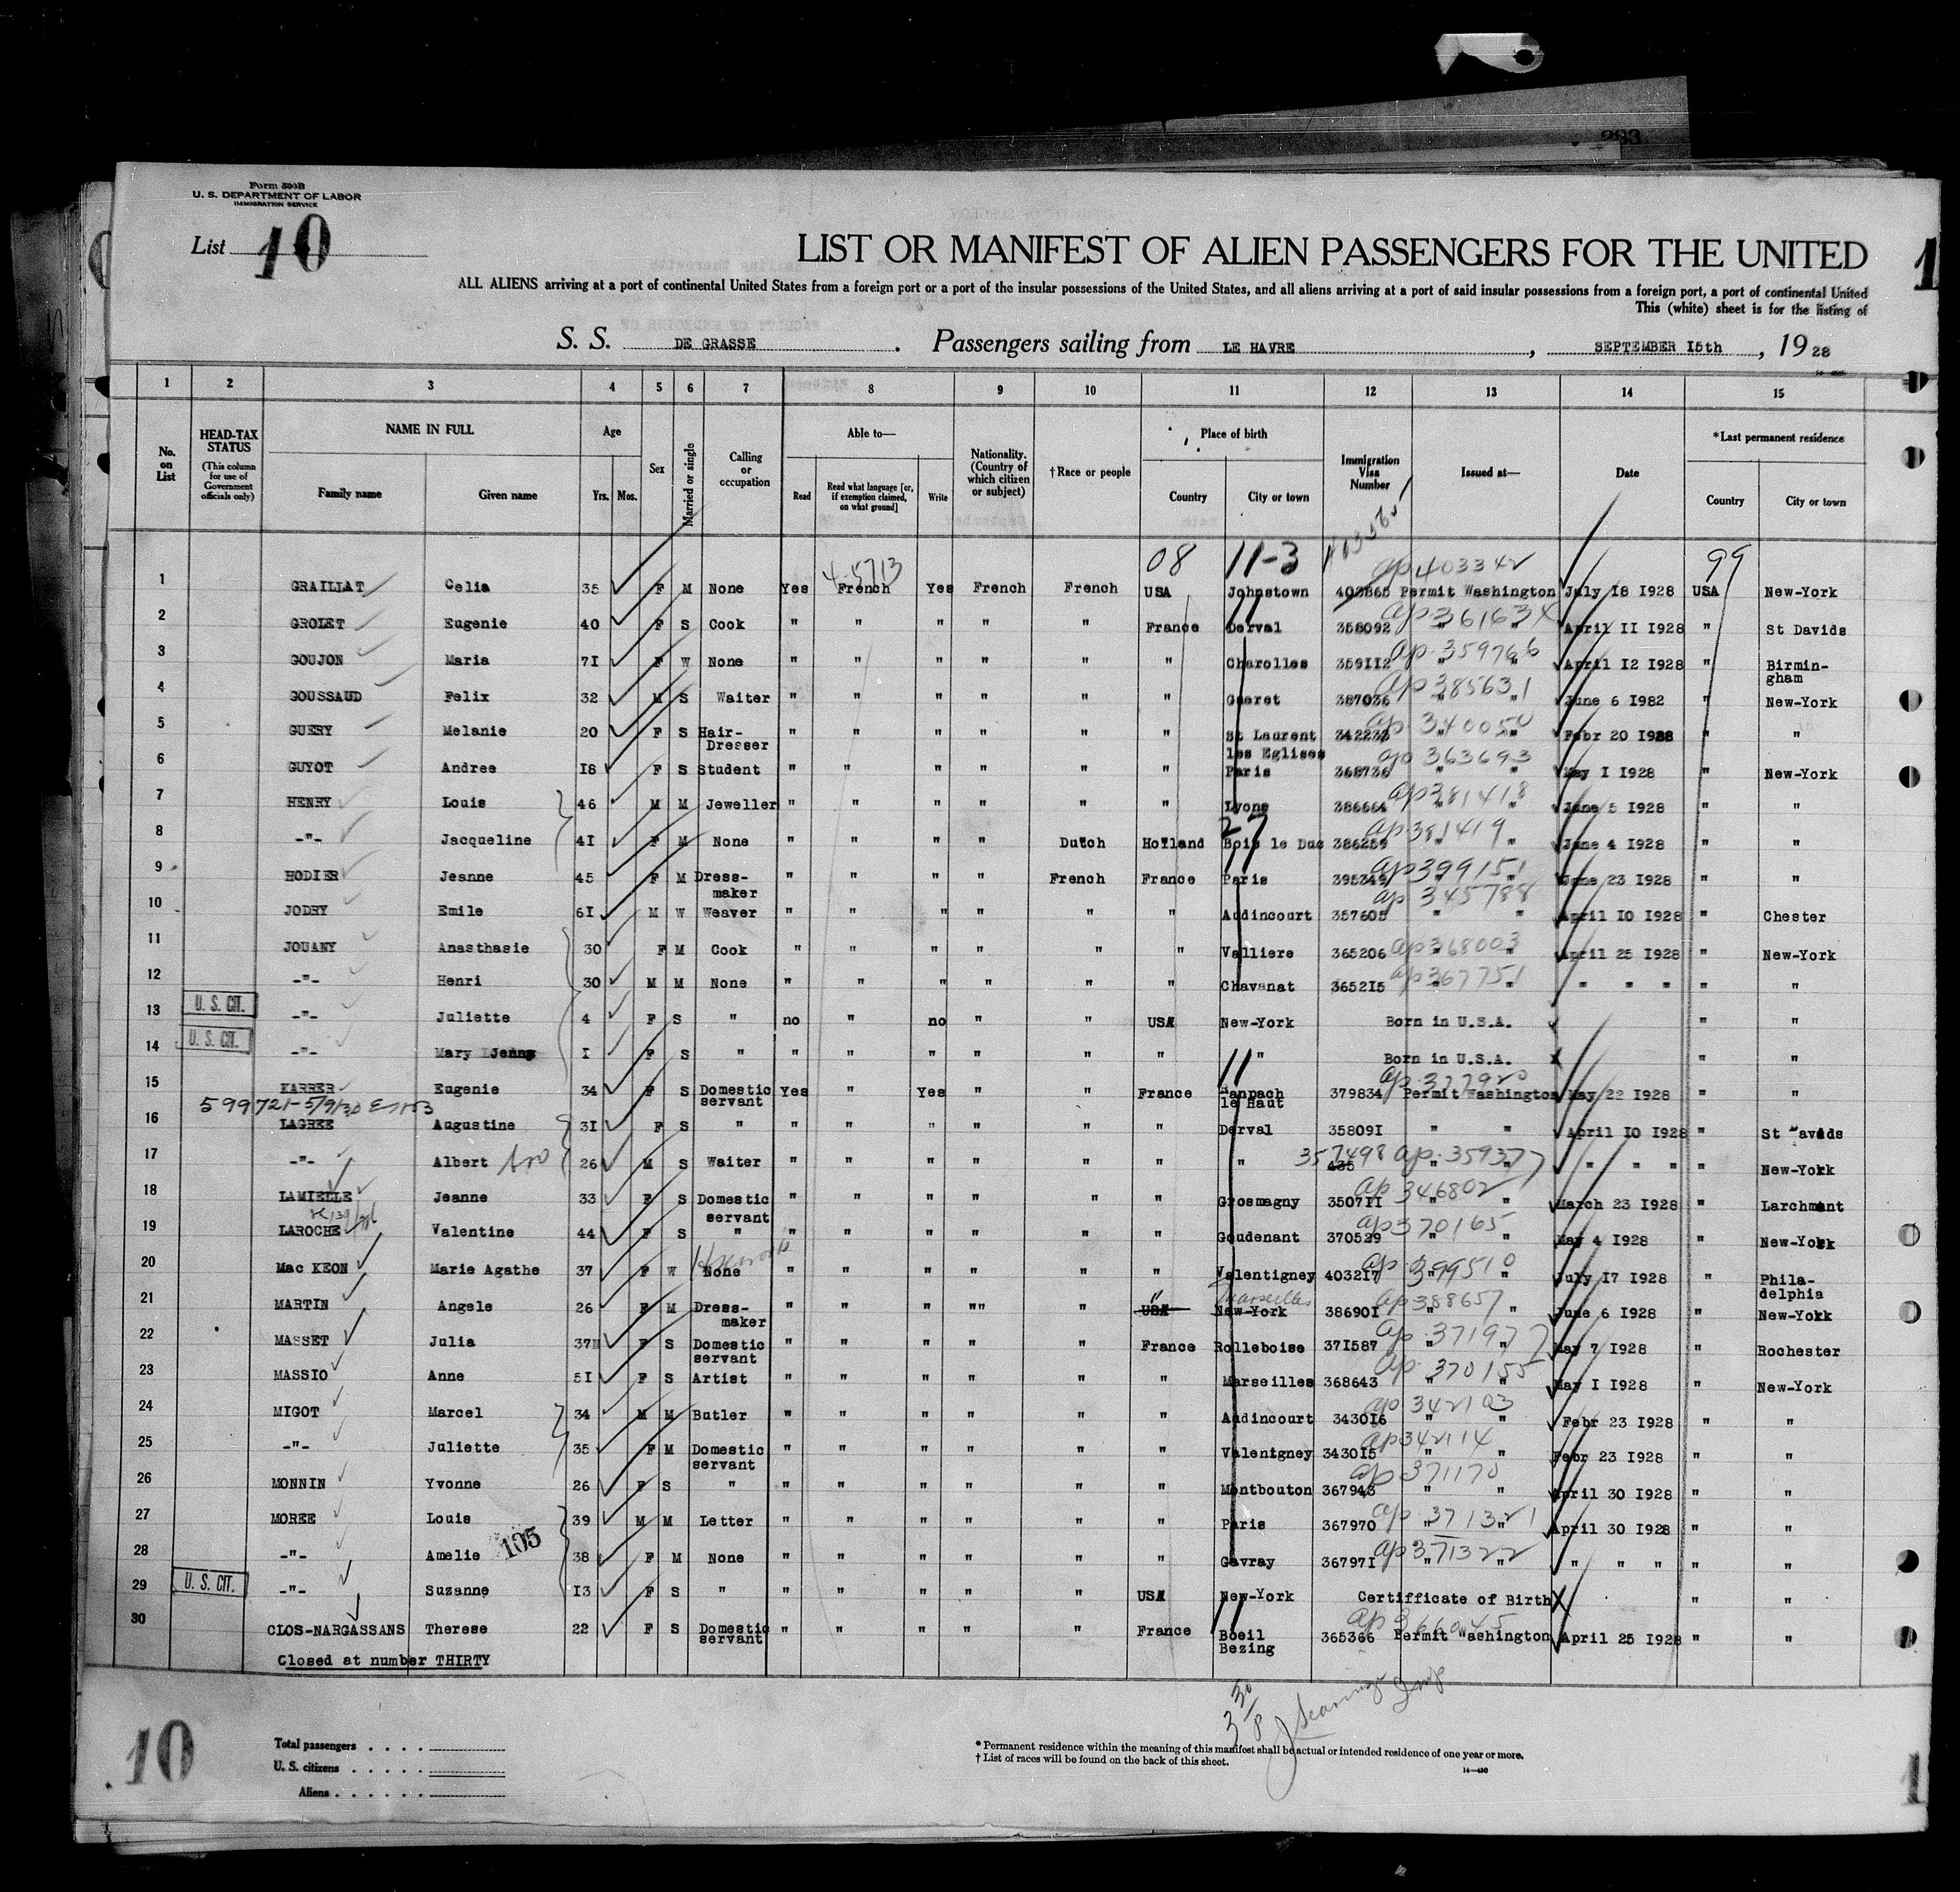 283
Form 500B
U. S. DEPARTMENT OF LABOR
IMMIGRATION SERVICE
List 10
LIST OR MANIFEST OF ALIEN PASSENGERS FOR THE UNITED
ALL ALIENS arriving at a port of continental United States from a foreign port or a port of the insular possessions of the United States, and all aliens arriving at a port of said insular possessions from a foreign port, a port of continental United
This (white) sheet is for the listing of
S. S. DE GRASSE . Passengers sailing from LE HAVRE , SEPTEMBER I5th , 19 28
1 2 3 4 5 6 7 8 9 10 11 12 13 14 15
No. on List HEAD-TAX STATUS (This column for use of Government officials only) NAME IN FULL Family name Given name Age Yrs. Mos. Sex Married or single Calling or occupation Able to— Read Read what language [or, if exemption claimed, on what ground] Write Nationality. (Country of which citizen or subject) †Race or people Place of birth Country City or town Immigration Visa Number Issued at— Date *Last permanent residence Country City or town
4-5713 08 11-3 ap 403342 99
1 GRAILLAT Celia 35 F M None Yes French Yes French French USA Johnstown 403865 Permit Washington July I8 I928 USA New-York
2 GROLET Eugenie 40 F S Cook " " " " " France Derval 358092 ap 361634 " " April II I928 " St Davids
3 GOUJON Maria 7I F W None " " " " " " Charolles 359II2 ap 359766 " " April I2 I928 " Birmin-gham
4 GOUSSAUD Felix 32 M S Waiter " " " " " " Gueret 387036 ap 385631 " " June 6 I982 " New-York
5 GUERY Melanie 20 F S Hair-Dresser " " " " " " St Laurent les Eglises 342233 ap 340050 " " Febr 20 I928 " "
6 GUYOT Andree I8 F S Student " " " " " " Paris 368736 ap 363693 " " May I I928 " New-York
7 HENRY Louis 46 M M Jeweller " " " " " " Lyons 386664 ap 381418 " " June 5 I928 " "
8 -"- Jacqueline 4I F M None " " " " Dutch Holland 27 Bois le Duc 386259 ap 381419 " " June 4 I928 " "
9 HODIER Jeanne 45 F M Dress-maker " " " " French France Paris 395349 ap 399151 " " June 23 I928 " "
10 JODRY Emile 6I M W Weaver " " " " " " Audincourt 357605 ap 345788 " " April I0 I928 " Chester
11 JOUANY Anasthasie 30 F M Cook " " " " " " Valliere 365206 ap 368003 " " April 25 I928 " New-York
12 -"- Henri 30 M M None " " " " " " Chavanat 3652I5 ap 367751 " " " " " " "
13 U. S. CIT. -"- Juliette 4 F S " no " no " " USA New-York Born in U.S.A. " "
14 U. S. CIT. -"- Mary I F S " " " " " " " " Born in U.S.A. X " "
15 KARRER Eugenie 34 F S Domestic servant Yes " Yes " " France 11 le Haut 379834 ap 377920 Permit Washington May 22 I928 " "
599721-5/9/30
16 LAGREE Augustine 3I F S " " " " " " " Derval 35809I " " April I0 I928 " St Davids
17 -"- Albert 26 M S Waiter " " " " " " " 357498 435 ap 359377 " " " " " " New-York
18 LAMIELLE Jeanne 33 F S Domestic servant " " " " " " Grosmagny 3507II ap 346802 " " March 23 I928 " Larchmont
19 LAROCHE Valentine 44 F S " " " " " " " Goudenant 370529 ap 370165 " " May 4 I928 " New-York
20 Mac KEON Marie Agathe 37 F W None " " " " " " Valentigney 4032I7 ap 399510 " " July I7 I928 " Phila-delphia
21 MARTIN Angele 26 F M Dress-maker " " " "" " USA " New-York Marseilles 38690I ap 388657 " " June 6 I928 " New-York
22 MASSET Julia 37 F S Domestic servant " " " " " France Rolleboise 37I587 ap 371977 " " May 7 I928 " Rochester
23 MASSIO Anne 5I F S Artist " " " " " " Marseilles 368643 ap 370155 " " May I I928 " New-York
24 MIGOT Marcel 34 M M Butler " " " " " " Audincourt 3430I6 ap 342103 " " Febr 23 I928 " "
25 -"- Juliette 35 F M Domestic servant " " " " " " Valentigney 3430I5 ap 342114 " " Febr 23 I928 " "
26 MONNIN Yvonne 26 F S " " " " " " " Montbouton 367943 ap 371170 " " April 30 I928 " "
27 MOREE Louis 39 M M Letter " " " " " " Paris 367970 ap 371321 " " April 30 I928 " "
28 -"- Amelie 105 38 F M None " " " " " " Gavray 36797I ap 371322 " " " " " " "
29 U. S. CIT. -"- Suzanne I3 F S " " " " " " USA New-York Certifficate of Birth X " "
30 CLOS-NARGASSANS Therese 22 F S Domestic servant " " " " " France 11 Boeil Bezing 365366 ap 366045 Permit Washington April 25 I928 " "
Closed at number THIRTY
10
Total passengers . . . .
U. S. citizens . . . . .
Aliens . . . . . .
* Permanent residence within the meaning of this manifest shall be actual or intended residence of one year or more.
† List of races will be found on the back of this sheet.
14—430